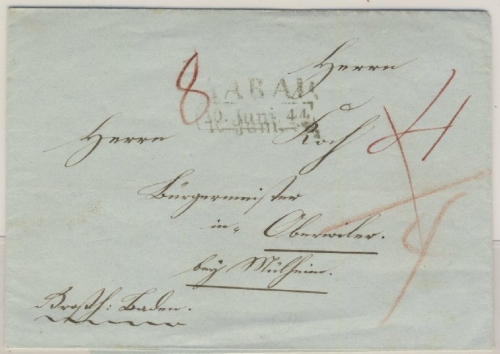 Herrn
8 AARAU
10. Juni 44
Herrn Koch
4
Bürgermeister
in Oberwiler.
bey Mülheim.
Grosh: Baden.